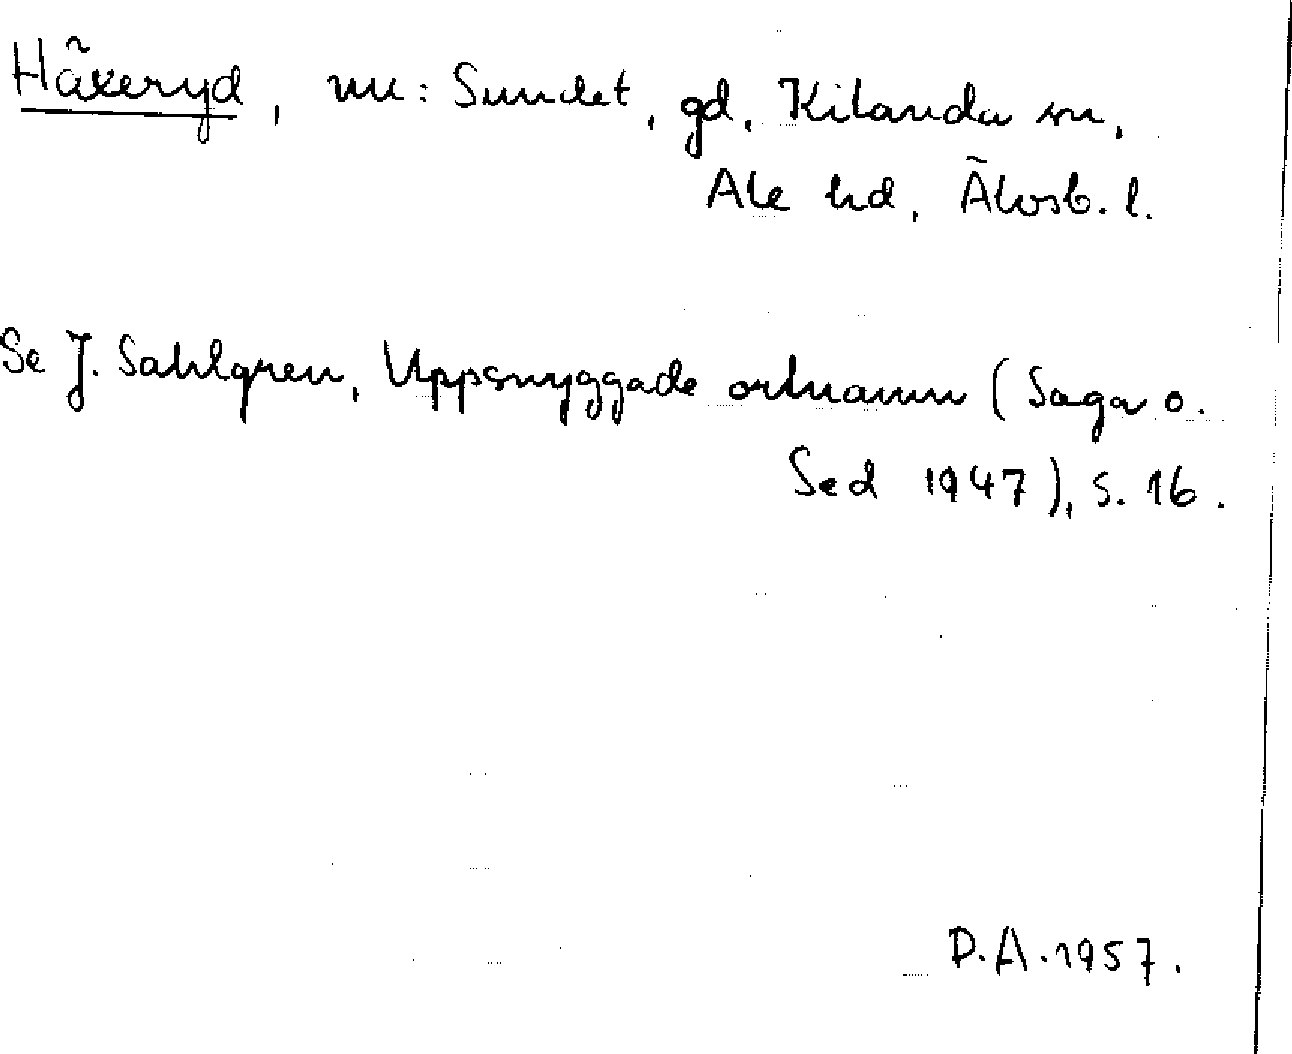 Häxeryd, nu: Sundet, gd, Kilanda sn,
Ale hd, Älvsb. l.
Se J. Sahlgren, Uppsnyggade ortnamn (Saga o.
Sed 1947), s. 16.
D.A. 1957.